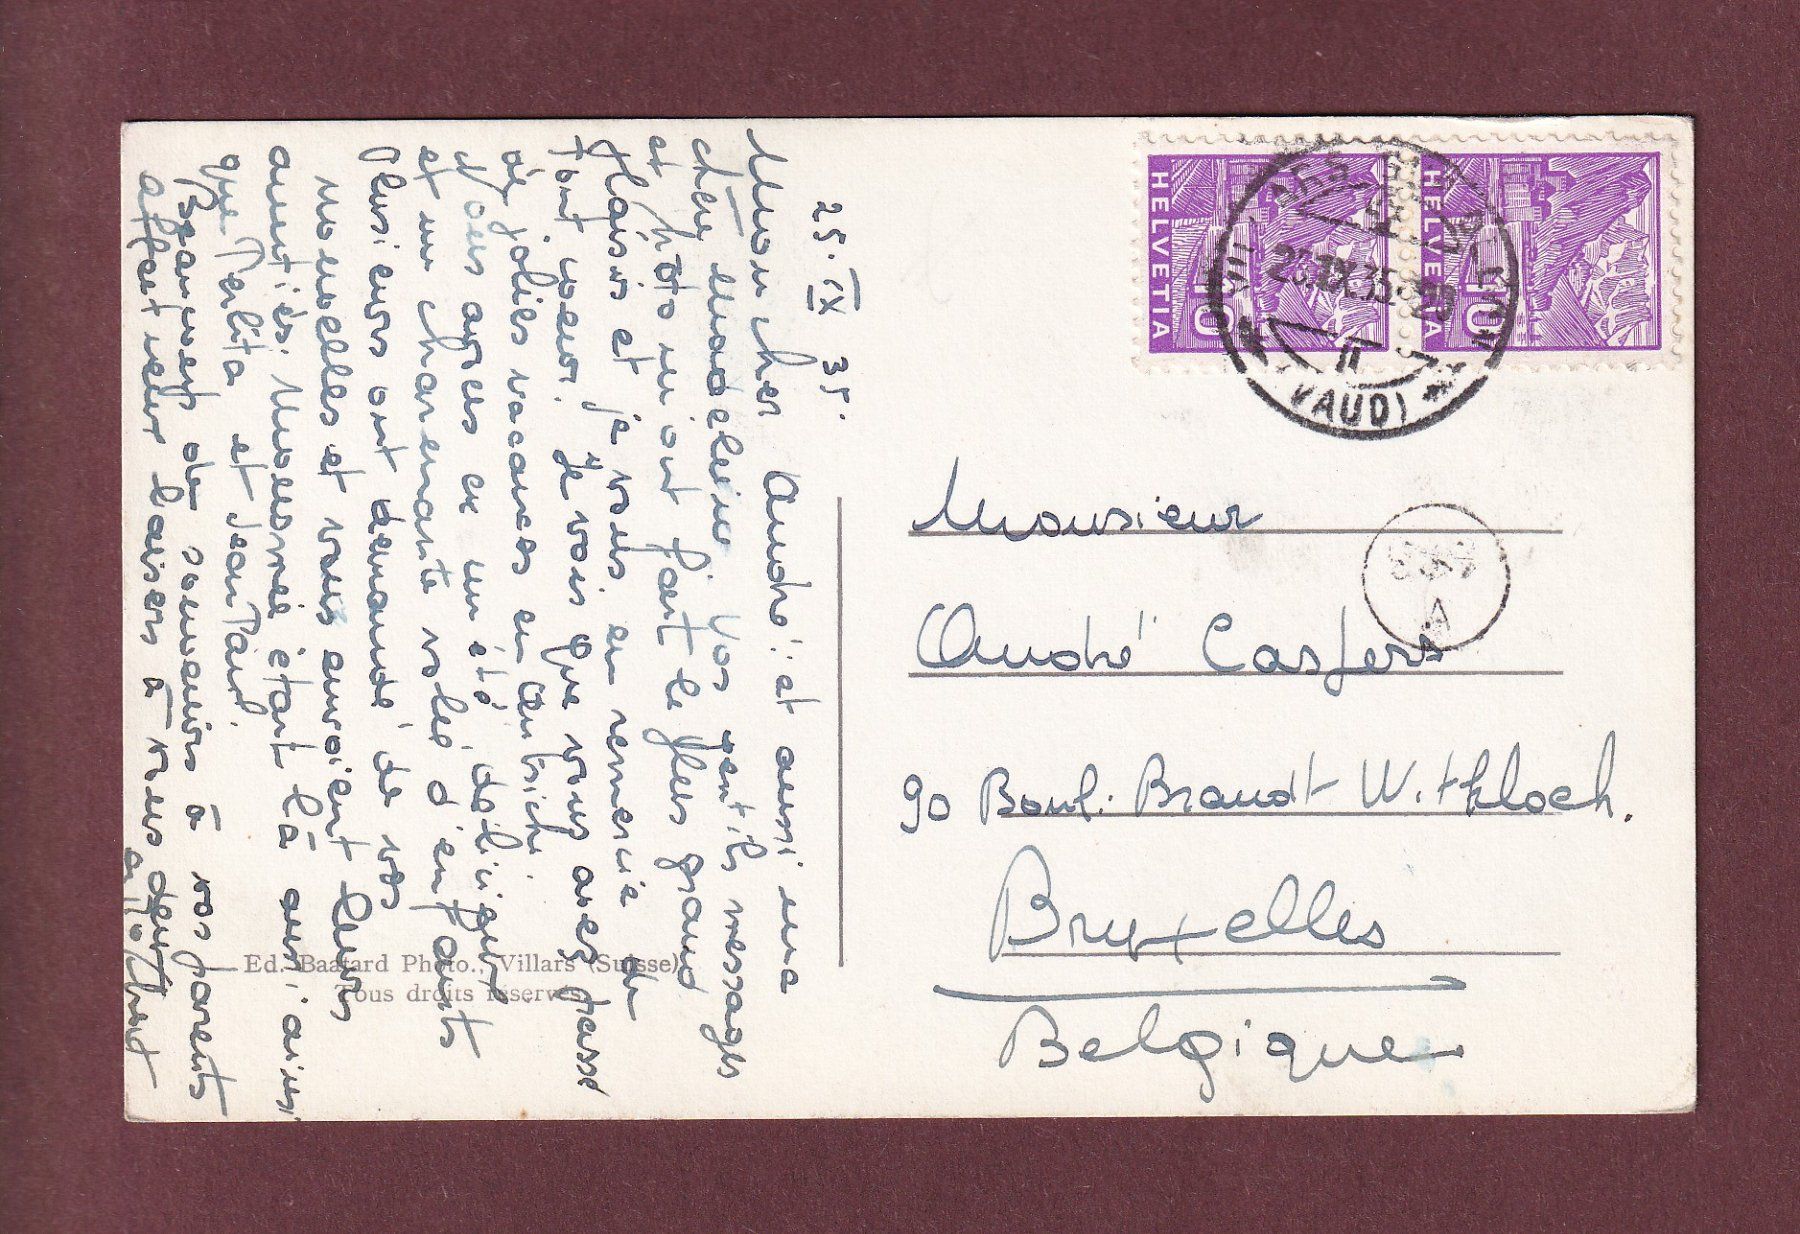 25. IX 35.
Mon cher André! et aussi ma
chère Madeleine! Vos gentils messages
et photo m'ont fait le plus grand
plaisir et je vous en remercie de
tout cœur. Je vois que vous avez passé
de jolies vacances en Autriche.
Nous avons eu un été délicieux
et une charmante volée d'enfants
Plusieurs ont demandé de vos
nouvelles et vous envoient leurs
amitiés. Moesmée étant là aussi ainsi
que Perlita et Jean Paul.
Beaucoup de souvenirs à vos parents
affectueux baisers à vous deux
Ed. Baatard Photo., Villars (Suisse)
Tous droits réservés.
HELVETIA 10
HELVETIA 10
VILLARS SUR OLLON
25.IX.35
II
(VAUD)
A
Monsieur
André Casters
90 Boul. Brandt Witplock.
Bruxelles
Belgique